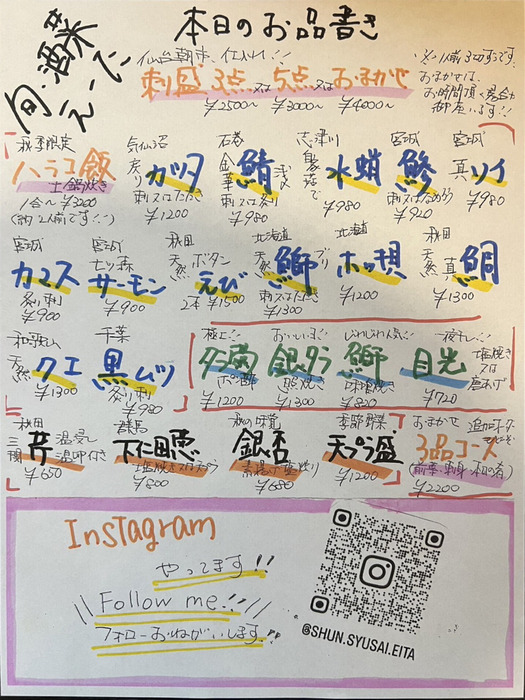 旬・酒菜 えーた
本日のお品書き
仙台朝市、仕入れ!!
刺盛 3点 又は 5点 又は おまかせ
¥2500〜 ¥3000〜 ¥4000〜
※1人前 3切ずつです。
おまかせは、
お時間頂く場合が
御座います!!
秋季限定
ハラコ飯
土鍋炊き
1合〜¥3200
(約2人前です)
気仙沼
戻り
カツオ
刺又はたたき
¥1200
石巻
金華
鯖
浅〆
刺又は炙り
¥980
志津川
水蛸
¥980
宮城
鯵
刺又はなめろう
¥920
宮城
真
ソイ
¥980
宮城
カマス
炙り刺
¥900
宮城
七ツ森
サーモン
¥900
秋田
天然
ボタン
えび
2本 ¥1500
北海道
天然
鰤
ブリ
刺又はたたき
¥1300
北海道
ホッキ貝
¥1200
秋田
天然
真
鯛
¥1300
和歌山
天然
クエ
¥1300
千葉
黒ムツ
炙り刺
¥980
極上!!
タラ菊
ポン酢
¥1200
おいしいよ!!
銀タラ
煮焼き
¥1300
じわじわ人気!!
鰤
味噌焼き
¥820
一夜干し!!
目光
塩焼き
又は
唐あげ
¥720
秋田
三関
芹
温浸し
温卵付き
¥650
群馬
下仁田葱
塩焼き又は天ぷら
¥800
秋の味覚
銀杏
素揚げ 塩炒り
¥680
季節野菜
天プラ盛
¥1200
おまかせ
3品コース
(前菜・刺身・本日の肴)
¥2200
Instagram
やってます!!
Follow me!!
フォローおねがいします!!
@SHUN.SYUSAI.EITA